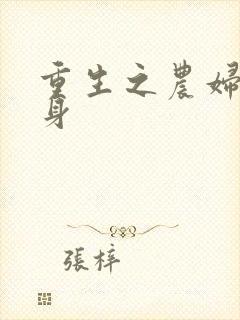 重生之農婦
身
張梓